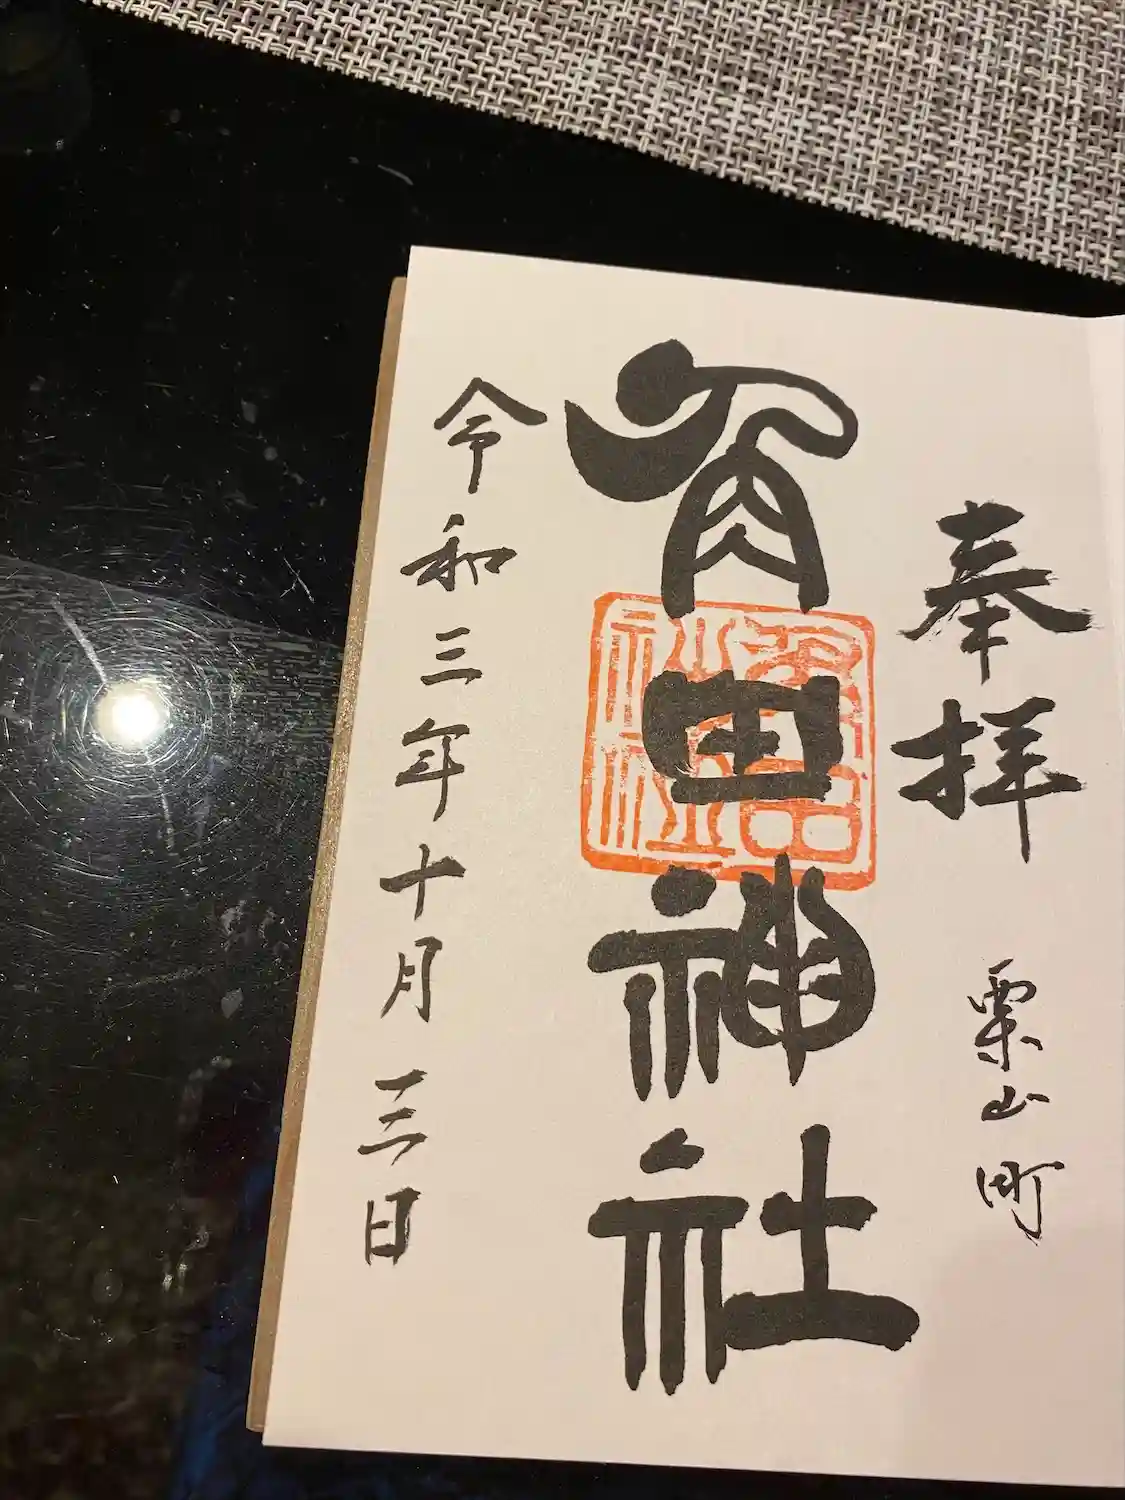 奉拝 栗山町
角田神社
令和三年十月三日